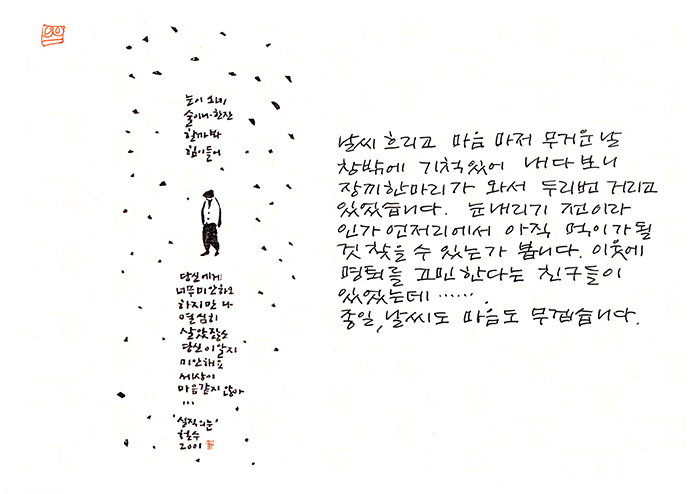 눈이 오네
술이나 한잔
할까봐
힘이들어
당신에게
너무미안하오
하지만 나
열심히
살았잖소
당신이알지
미안해요
세상이
마음같지 않아
...
'실직의눈'
철수
2001
날씨 흐리고 마음 마저 무거운 날
창밖에 기척있어 내다 보니
장끼한마리가 와서 두리번 거리고
있었습니다. 눈내리기 전이라
인가 언저리에서 아직 먹이가될
것 찾을 수 있는가 봅니다. 이웃에
명퇴를 고민한다는 친구들이
있었는데 …… .
종일, 날씨도 마음도 무겁습니다.